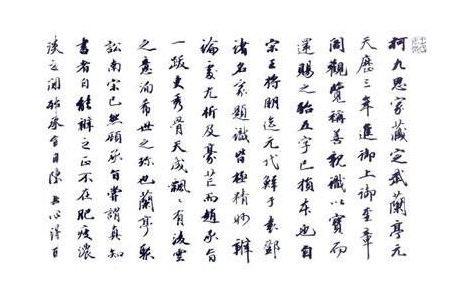 柯九思家藏定武蘭亭元
天曆三年進御上御奎章
閣觀覽稱善親識以寶而
還賜之 五字已損本也自
宋王將明迄元代鮮于袁鄧
諸名家題識皆極精妙辨
論處尤析及豪芒而趙承旨
一跋更秀骨天成飄飄有凌雲
之意洵希世之珍也蘭亭聚
訟南宋已然顧承旨嘗謂真知
書者自能辨之正不在肥瘦濃
淡之間